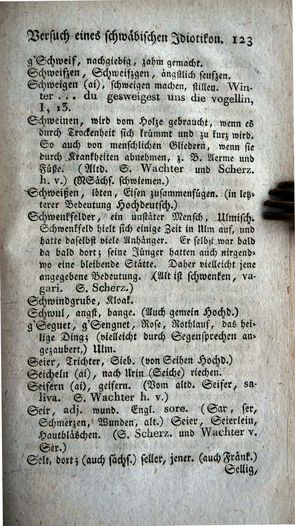 Versuch eines schwäbischen Idiotikon. 123
g'Schweif, nachgiebig, zahm gemacht.
Schweifzen, Schweifzgen, ängstlich seufzen.
Schweigen (ai), schweigen machen, stillen. Win-
ter . . . du gesweigest uns die vogellin,
I, 13.
Schweinen, wird vom Holze gebraucht, wenn es
durch Trockenheit sich krümmt und zu kurz wird.
So auch von menschlichen Gliedern, wenn sie
durch Krankheiten abnehmen, z. B. Aerme und
Füße. (Altd. S. Wachter und Scherz.
h. v.) (RSächs. schwiemen.)
Schweißen, löten, Eisen zusammenfügen. (in letz-
terer Bedeutung Hochdeutsch.)
Schwenkfelder, ein unstäter Mensch, Ulmisch.
Schwenkfeld hielt sich einige Zeit in Ulm auf, und
hatte daselbst viele Anhänger. Er selbst war bald
da bald dort; seine Jünger hatten auch nirgend-
wo eine bleibende Stätte. Daher vielleicht jene
angegebene Bedeutung. (Alt ist schwenken, va-
gari. S. Scherz.)
Schwindgrube, Kloak.
Schwul, angst, bange. (Auch gemein Hochd.)
g'Segnet, g'Sengnet, Rose, Rothlauf, das hei-
lige Ding; (vielleicht durch Segensprechen an-
gezaubert,) Ulm.
Seier, Trichter, Sieb. (von Seihen Hochd.)
Seicheln (ai), nach Urin (Seiche) riechen.
Seifern (ai), geifern. (Vom altd. Seifer, sa-
liva. S. Wachter h. v.)
Seir, adj. wund. Engl. sore. (Sar, ser,
Schmerzen, Wunden, alt.) Seier, Seierlein,
Hautbläschen. (S. Scherz. und Wachter v.
Ser.)
Selt, dort; (auch sächs.) seller, jener. (auch Fränk.)
Sellig,